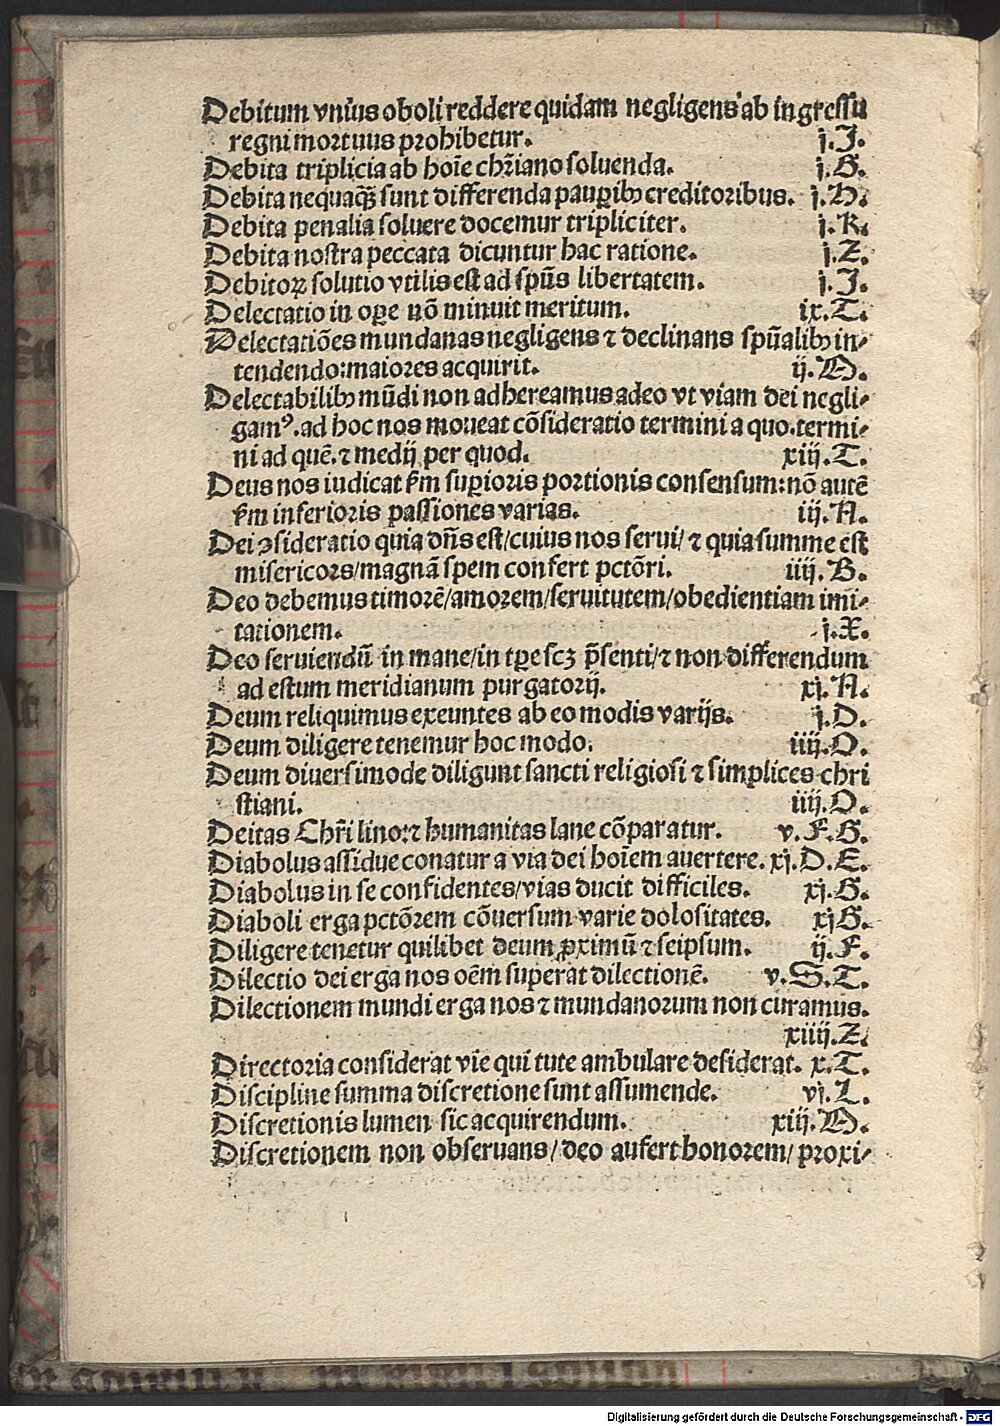 Debitum vnius oboli reddere quidam negligens ab ingressu
regni mortuus prohibetur. j.J.
Debita triplicia ab hoīe chr̄iano soluenda. j.G.
Debita nequaꝗ̃ sunt differenda pauꝑibꝫ creditoribus. j.H.
Debita penalia soluere docemur tripliciter. j.K.
Debita nostra peccata dicuntur hac ratione. j.Z.
Debitoꝝ solutio vtilis est ad spūs libertatem. j.J.
Delectatio in oꝑe nō minuit meritum. ix.T.
Delectatiōes mundanas negligens ⁊ declinans spūalibꝫ in⸗
tendendo:maiores acquirit. ij.M.
Delectabilibꝫ mūdi non adhereamus adeo vt viam dei negli⸗
gamꝰ.ad hoc nos moueat cōsideratio termini a quo.termi⸗
ni ad quē.⁊ medij per quod. xiij.T.
Deus nos iudicat ẜm suꝑioris portionis consensum:nō autē
ẜm inferioris passiones varias. iij.A.
Dei ꝯsideratio quia dn̄s est/cuius nos serui/⁊ quia summe est
misericors/magnā spem confert pctōri. iiij.B.
Deo debemus timorē/amorem/seruitutem/obedientiam imi⸗
tationem. j.X.
Deo seruiendū in mane/in tꝑe scꝫ p̄senti/⁊ non differendum
ad estum meridianum purgatorij. xj.A.
Deum reliquimus exeuntes ab eo modis varijs. j.D.
Deum diligere tenemur hoc modo. iiij.O.
Deum diuersimode diligunt sancti religiosi ⁊ simplices chri
stiani. iiij.O.
Deitas Chr̄i lino:⁊ humanitas lane cōparatur. v.F.G.
Diabolus assidue conatur a via dei hoīem auertere. xj.D.E.
Diabolus in se confidentes/vias ducit difficiles. xj.G.
Diaboli erga pctōrem cōuersum varie dolositates. xjG.
Diligere tenetur quilibet deum ꝓximū ⁊ seipsum. ij.F.
Dilectio dei erga nos oēm superat dilectionē. v.S.T.
Dilectionem mundi erga nos ⁊ mundanorum non curamus.
xiiij.Z.
Directoria considerat vie qui tute ambulare desiderat. x.T.
Discipline summa discretione sunt assumende. vj.L.
Discretionis lumen sic acquirendum. xiij.M.
Discretionem non obseruans/deo aufert honorem/proxi⸗
Digitalisierung gefördert durch die Deutsche Forschungsgemeinschaft - DFG